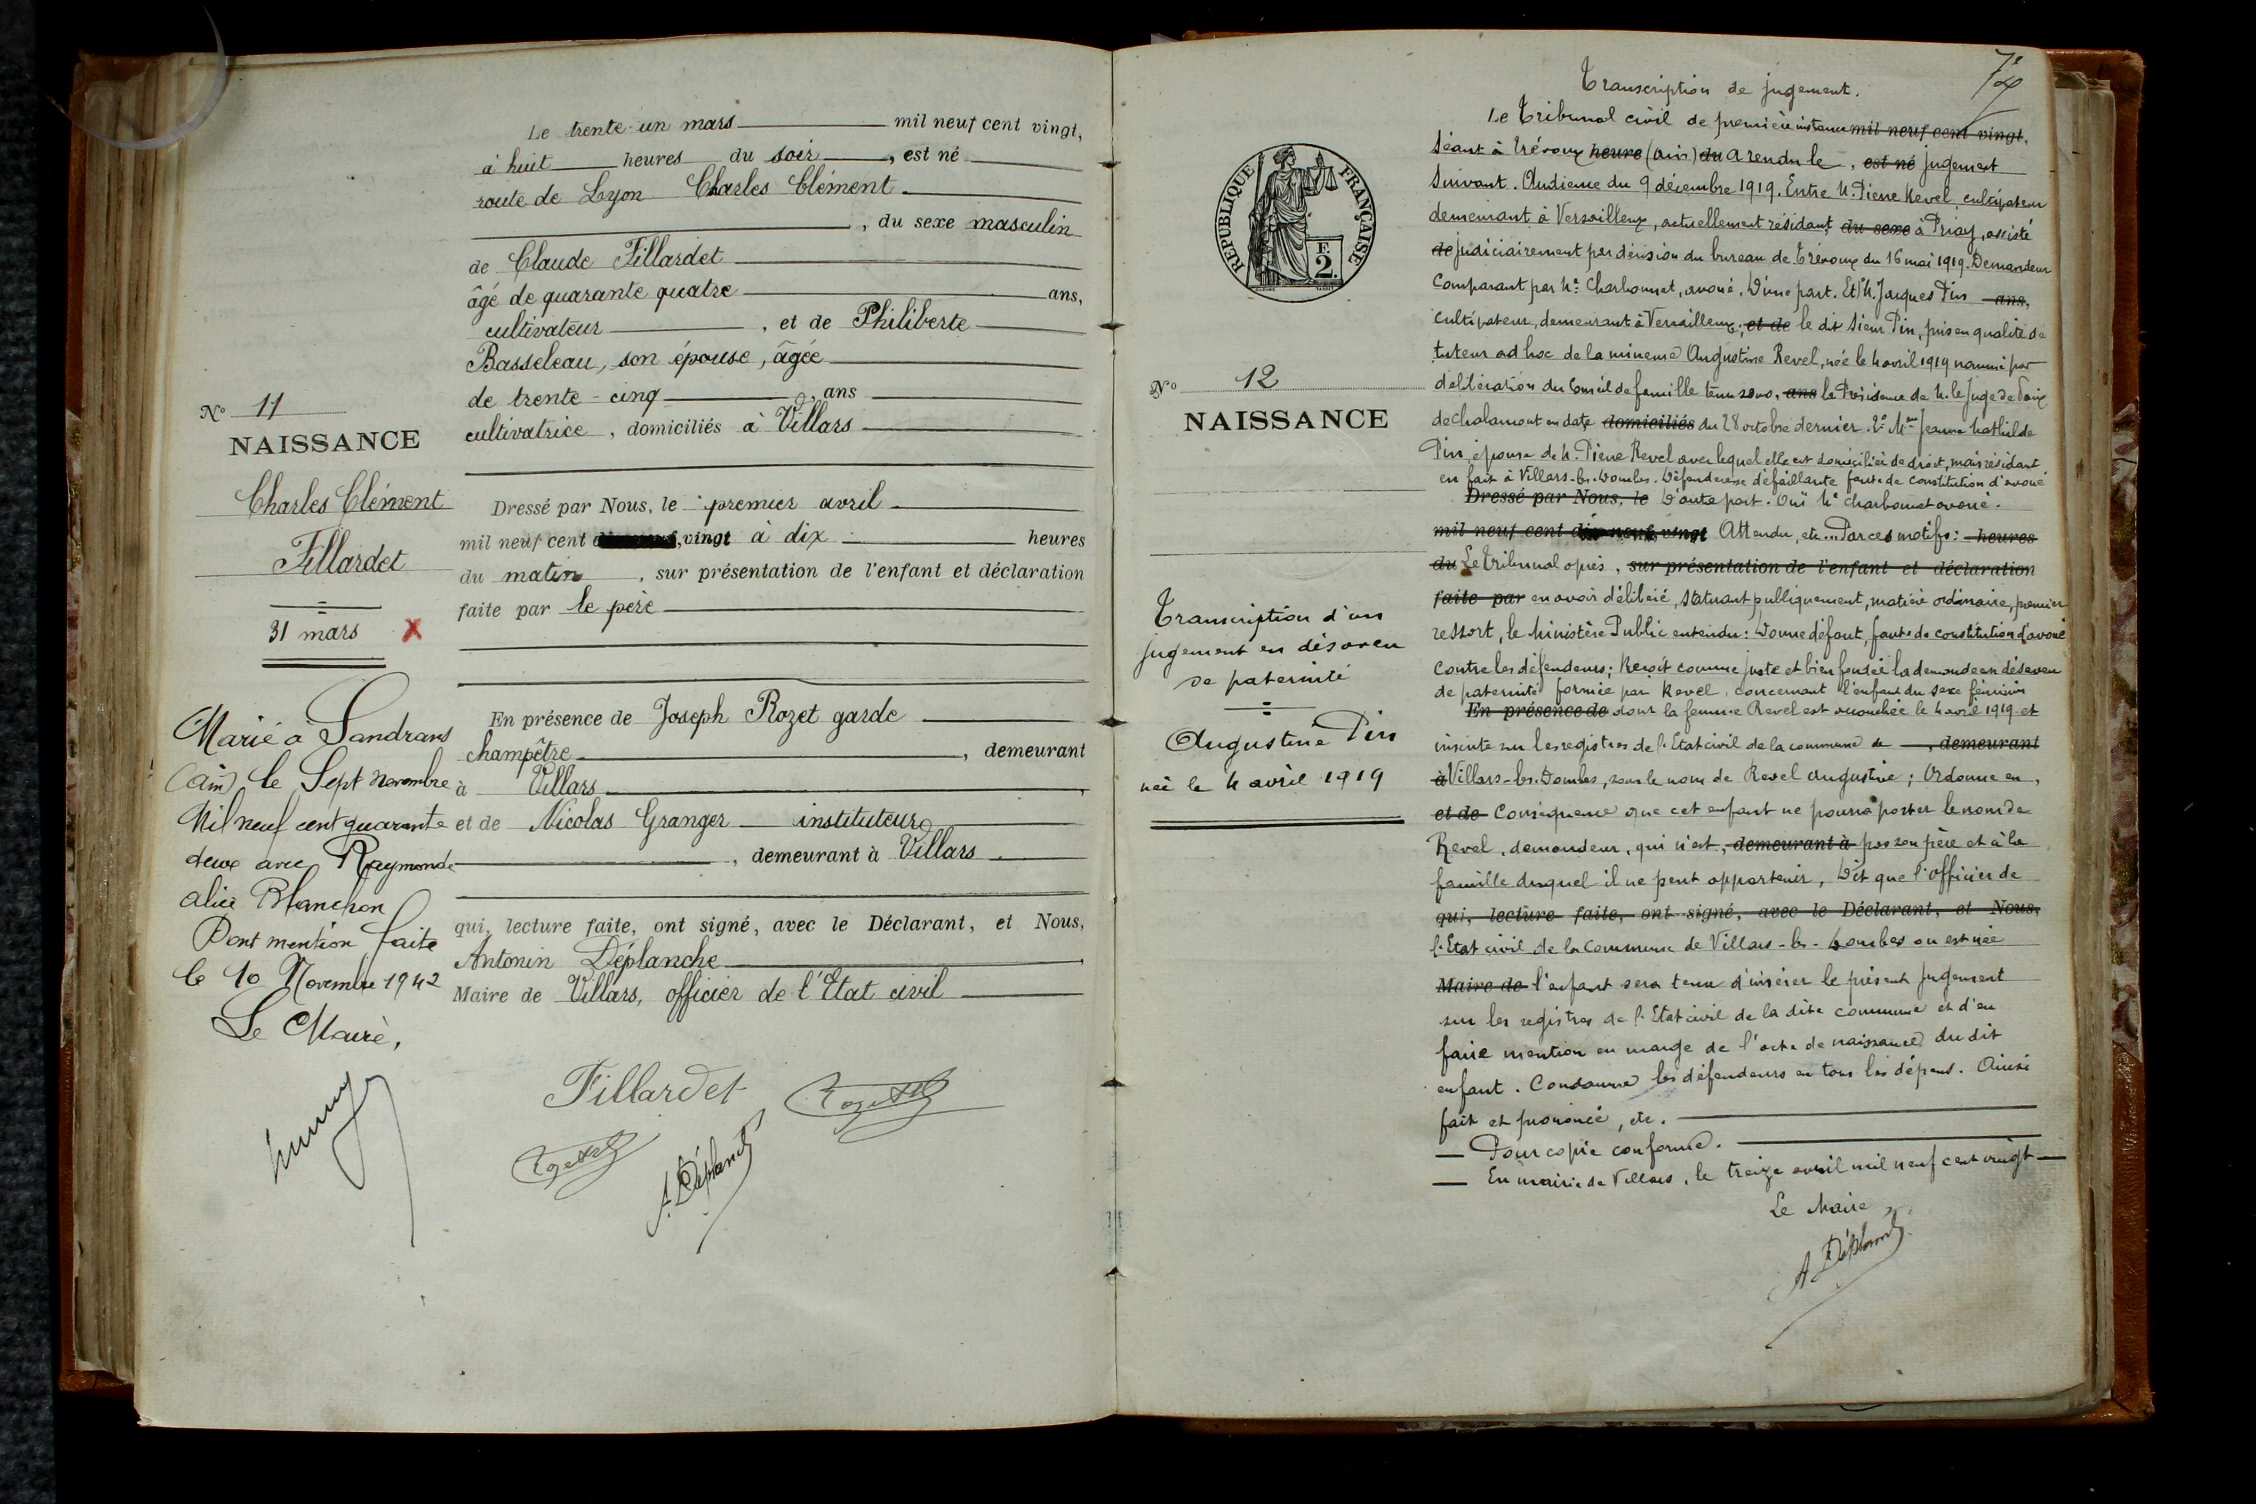 Le trente-un mars mil neuf cent vingt,
à huit heures du soir, est né
route de Lyon Charles Clément
, du sexe masculin
de Claude Fillardet
âgé de quarante quatre ans,
cultivateur, et de Philiberte
Basseleau, son épouse, âgée
de trente-cinq, ans
cultivatrice, domiciliés à Villars
N° 11
NAISSANCE
Charles Clément
Fillardet
31 mars X
Dressé par Nous, le premier avril
mil neuf cent vingt à dix heures
du matin, sur présentation de l'enfant et déclaration
faite par le père
En présence de Joseph Rozet garde
champêtre, demeurant
à Villars
et de Nicolas Granger instituteur
, demeurant à Villars
qui, lecture faite, ont signé, avec le Déclarant, et Nous,
Antonin Déplanche
Maire de Villars, officier de l'Etat civil
Marié à Sandrans
(Ain) le Sept Novembre
Mil neuf cent quarante
deux avec Raymonde
Alice Blanchon
Dont mention faite
le 10 Novembre 1942
Le Maire,
Fillardet
A. Déplanche
Transcription de jugement.
Le Tribunal civil de première instance mil neuf cent vingt,
séant à Trévoux heure (Ain) du a rendu le, est né jugement
suivant. Audience du 9 décembre 1919. Entre M. Pierre Revel, cultivateur
demeurant à Versailleux, actuellement résidant du sexe à Priay, assisté
de judiciairement par décision du bureau de Trévoux du 16 mai 1919. Demandeur
Comparant par Me Charbonnet, avoué, d'une part. Et 1° M. Jacques Pin ans,
cultivateur, demeurant à Versailleux, et de le dit sieur Pin, pris en qualité de
tuteur ad hoc de la mineure Augustine Revel, née le 4 avril 1919 nommé par
délibération du Conseil de famille tenu sous, ans la Présidence de M. le Juge de Paix
de Chalamont en date domiciliés du 28 octobre dernier. 2° Mme Jeanne Mathilde
Pin, épouse de M. Pierre Revel avec lequel elle est domiciliée de droit, mais résidant
en fait à Villars-les-Dombes. Défenderesse défaillante faute de constitution d'avoué
Dressé par Nous, le D'autre part. Ouï Me Charbonnet avoué.
mil neuf cent dix-neuf, vingt Attendu, etc... Par ces motifs: heures
du Le Tribunal après, sur présentation de l'enfant et déclaration
faite par en avoir délibéré, statuant publiquement, matière ordinaire, premier
ressort, le Ministère Public entendu: Donne défaut, faute de constitution d'avoué
contre les défendeurs; Reçoit comme juste et bien fondée la demande en désaveu
de paternité formée par Revel, concernant l'enfant du sexe féminin
En présence de dont la femme Revel est accouchée le 4 avril 1919 et
inscrite sur les registres de l'Etat civil de la commune de, demeurant
à Villars-les-Dombes, sous le nom de Revel Augustine; Ordonne en,
et de conséquence que cet enfant ne pourra porter le nom de
Revel, demandeur, qui n'est, demeurant à pas son père et à la
famille duquel il ne peut appartenir, Dit que l'officier de
qui, lecture faite, ont signé, avec le Déclarant, et Nous,
l'Etat civil de la Commune de Villars-les-Dombes où est née
Maire de l'enfant sera tenu d'insérer le présent jugement
sur les registres de l'Etat civil de la dite commune et d'en
faire mention en marge de l'acte de naissance du dit
enfant. Condamne les défendeurs en tous les dépens. Ainsi
fait et prononcé, etc.
Pour copie conforme.
En mairie de Villars, le treize avril mil neuf cent vingt
Le Maire
A. Déplanche
RÉPUBLIQUE FRANÇAISE
F.
2.
N° 12
NAISSANCE
Transcription d'un
jugement en désaveu
de paternité
Augustine Pin
née le 4 avril 1919